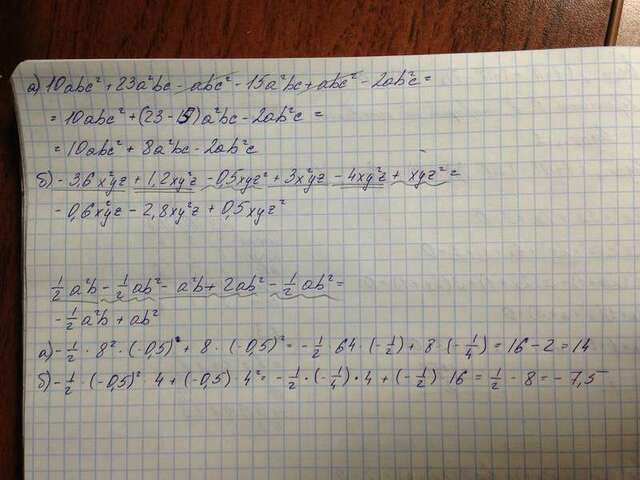 а) 10abc² + 23a²bc - abc² - 15a²bc + abc² - 2ab²c =
= 10abc² + (23 - 15)a²bc - 2ab²c =
= 10abc² + 8a²bc - 2ab²c
б) - 3,6x²y²z + 1,2xy²z - 0,5xyz² + 3x²y²z - 4xy²z + xyz² =
- 0,6x²y²z - 2,8xy²z + 0,5xyz²
1/2 a²b - 1/2 ab² - a²b + 2ab² - 1/2 ab² =
- 1/2 a²b + ab²
а) - 1/2 · 8² · (-0,5) + 8 · (-0,5)² = - 1/2 64 (-1/2) + 8 · (-1/4) = 16 - 2 = 14
б) - 1/2 · (-0,5)² · 4 + (-0,5) 4² = - 1/2 · (-1/4) · 4 + (-1/2) 16 = 1/2 - 8 = - 7,5